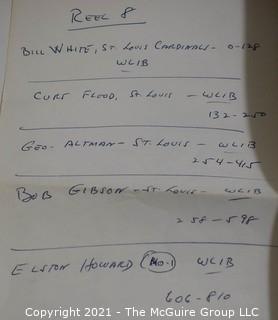 REEL 8
BILL WHITE, ST. LOUIS CARDINALS - 0-128
WLIB
CURT FLOOD, ST. LOUIS - WLIB
132-250
GEO- ALTMAN - ST. LOUIS - WLIB
254-415
BOB GIBSON - ST. LOUIS - WLIB
258-598
ELSTON HOWARD (NO.1) WLIB
606-810
Copyright 2021 - The McGuire Group LLC